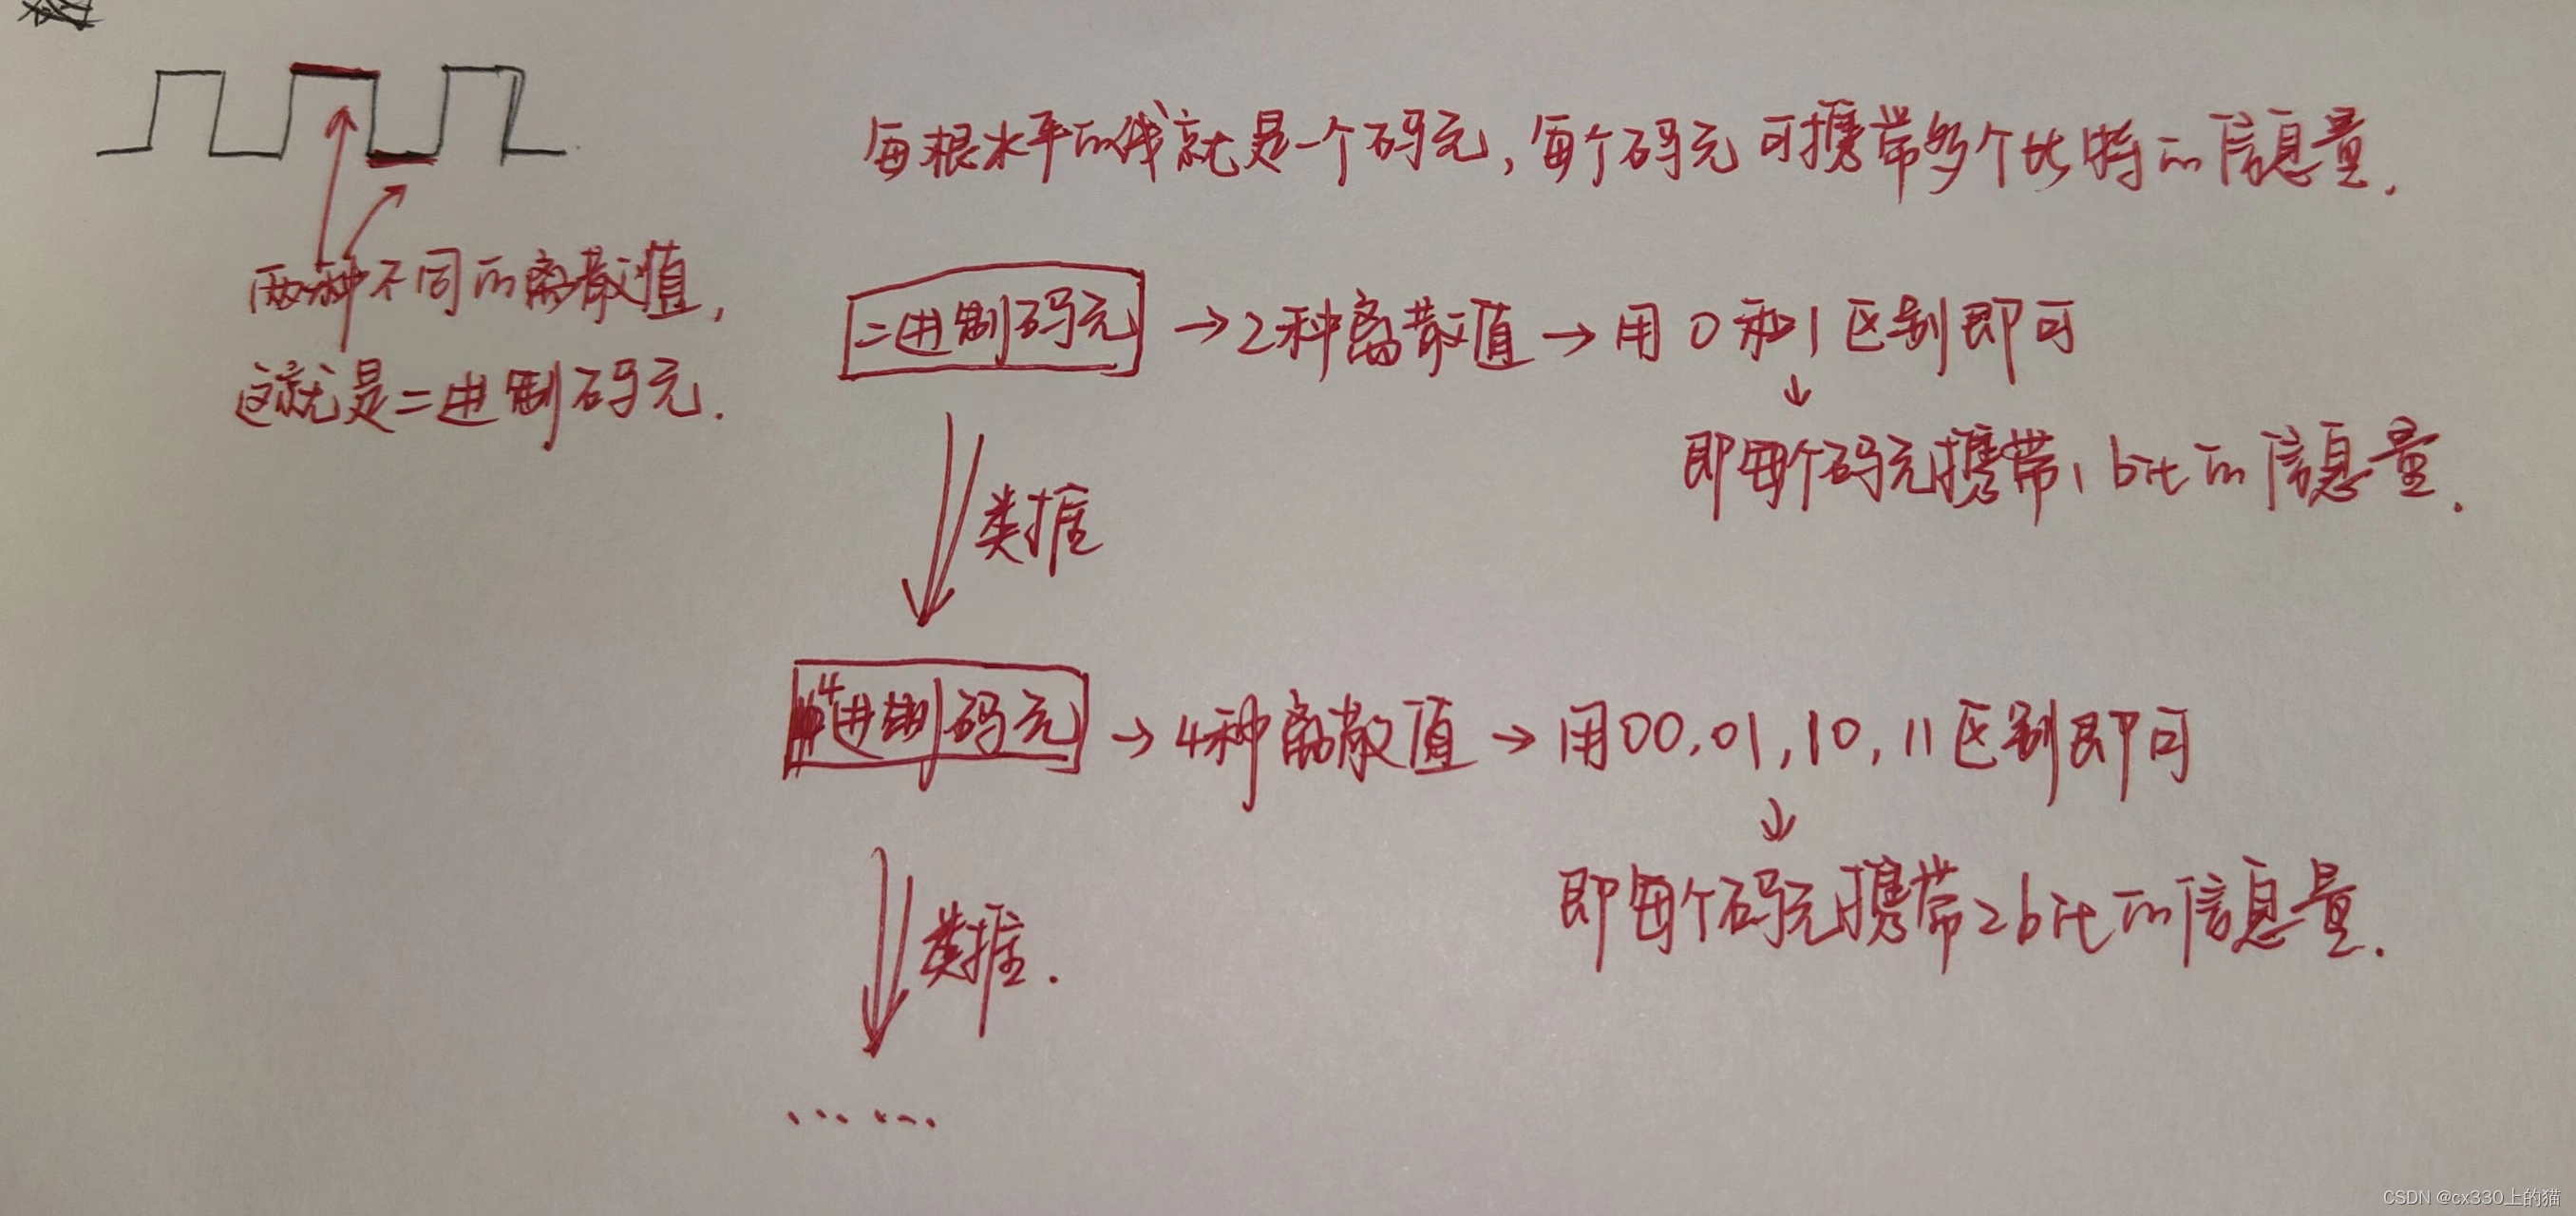 每根水平的线就是一个码元，每个码元可携带多个比特的信息量.
两种不同的离散值，
这就是二进制码元.
二进制码元 → 2种离散值 → 用 0 和 1 区别即可
↓
即每个码元携带1 bit的信息量.
类推
4进制码元 → 4种离散值 → 用00, 01, 10, 11区别即可
↓
即每个码元携带2bit的信息量.
类推.
……
CSDN @cx330上的猫